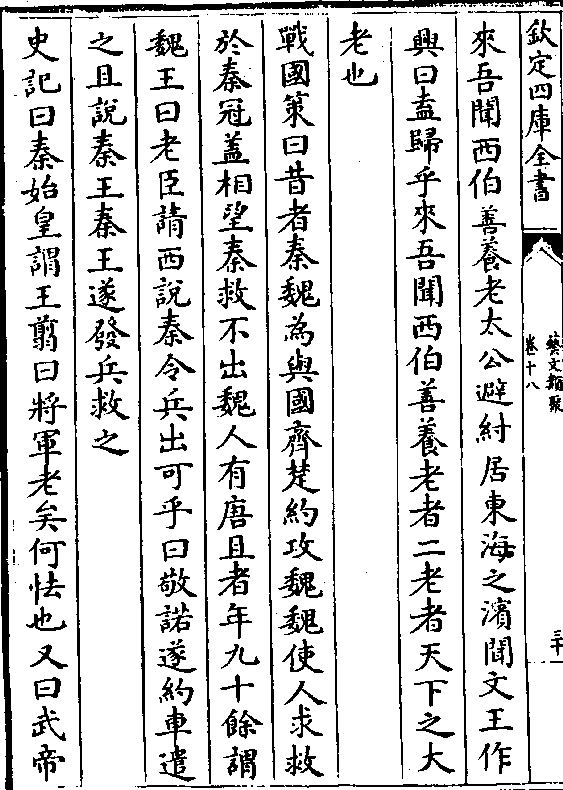 欽定四庫全書
藝文類聚
卷十八
三十
來吾聞西伯善養老太公避紂居東海之濱聞文王作
興曰盍歸乎來吾聞西伯善養老者二老者天下之大
老也
戰國策曰昔者秦魏為與國齊楚約攻魏魏使人求救
於秦冠蓋相望秦救不出魏人有唐且者年九十餘謂
魏王曰老臣請西說秦令兵出可乎曰敬諾遂約車遣
之且說秦王秦王遂發兵救之
史記曰秦始皇謂王翦曰將軍老矣何怯也又曰武帝